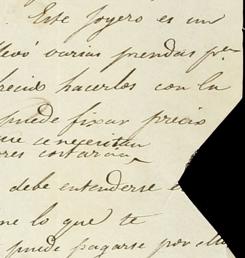 Este joyero es un
llevó varias prendas pa
hacerlos con la
puede fixar precio
que se necesitan
cortaran
debe entenderse
lo que te
puede pagarse por ella